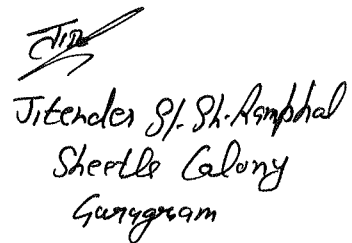 Jitender S/. Sh. Ramphal
Sheetle Colony
Gurugram